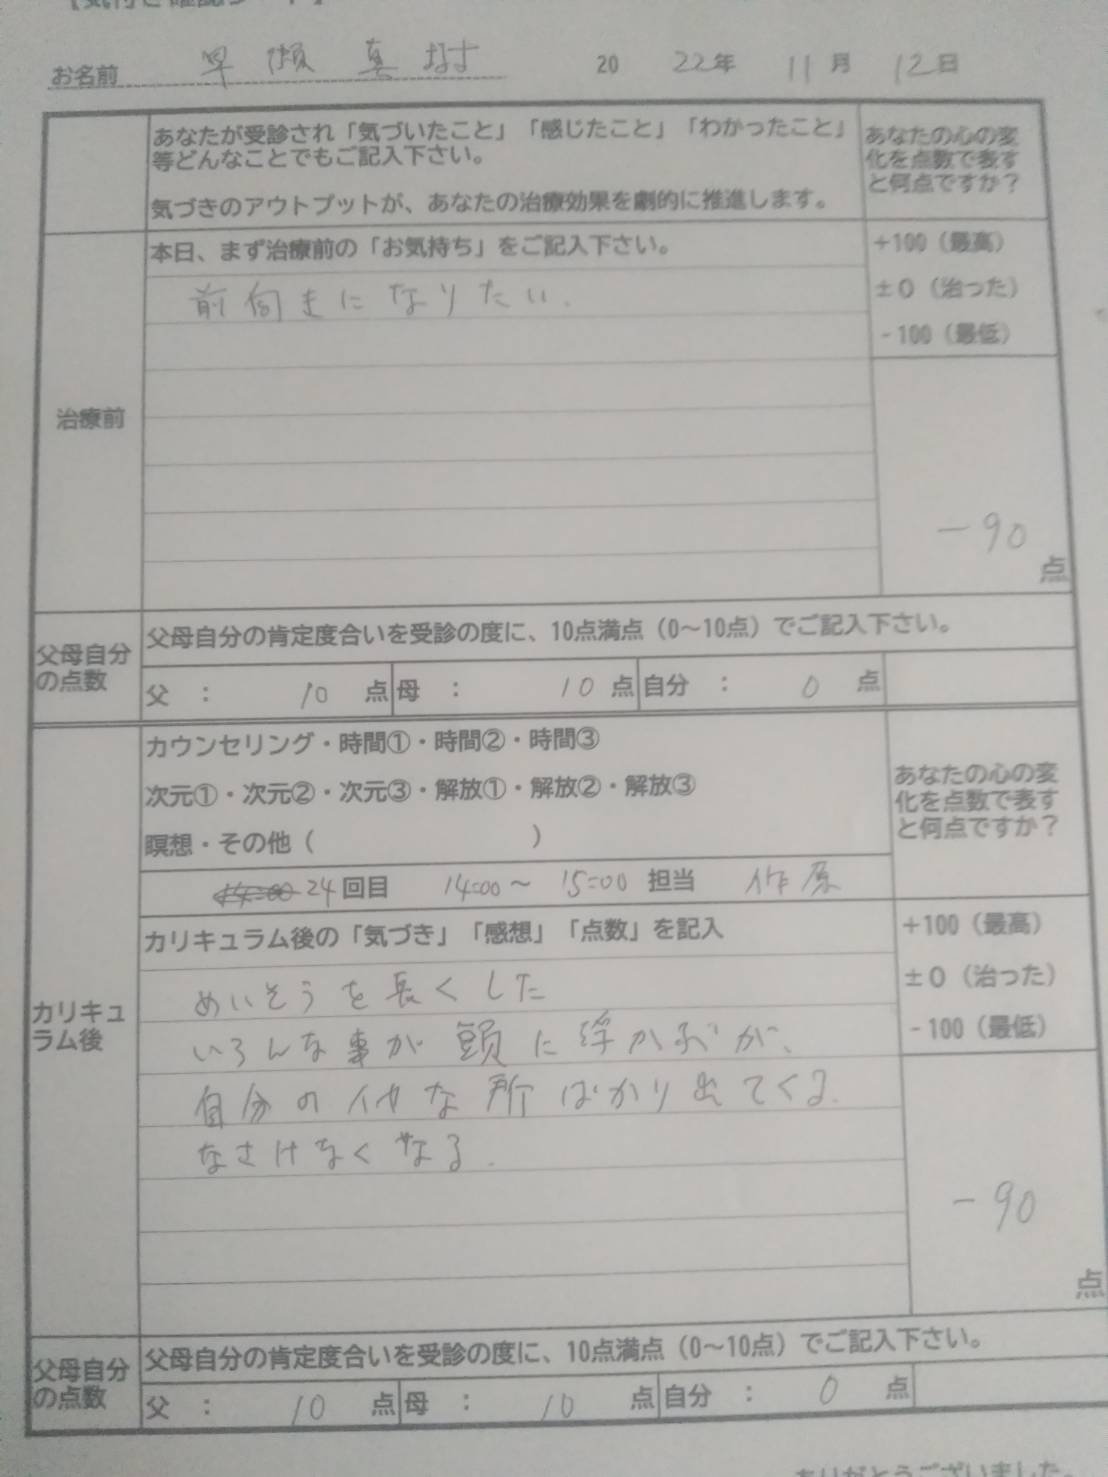 【気付き確認シート】
お名前 早瀬 真樹 2022年 11月 12日
あなたが受診され「気づいたこと」「感じたこと」「わかったこと」
等どんなことでもご記入下さい。
気づきのアウトプットが、あなたの治療効果を劇的に推進します。
あなたの心の変
化を点数で表す
と何点ですか？
治療前
本日、まず治療前の「お気持ち」をご記入下さい。
前向きになりたい.
+100（最高）
±0（治った）
-100（最低）
-90
点
父母自分
の点数
父母自分の肯定度合いを受診の度に、10点満点（0～10点）でご記入下さい。
父 ： 10 点 母 ： 10 点 自分 ： 0 点
カリキュ
ラム後
カウンセリング・時間①・時間②・時間③
次元①・次元②・次元③・解放①・解放②・解放③
瞑想・その他（ ）
24回目 14=00～ 15=00 担当 作原
あなたの心の変
化を点数で表す
と何点ですか？
カリキュラム後の「気づき」「感想」「点数」を記入
めいそうを長くした
いろんな事が頭に浮かぶが、
自分のイヤな所ばかり出てくる.
なさけなくなる.
+100（最高）
±0（治った）
-100（最低）
-90
点
父母自分
の点数
父母自分の肯定度合いを受診の度に、10点満点（0～10点）でご記入下さい。
父 ： 10 点 母 ： 10 点 自分 ： 0 点
ありがとうございました。